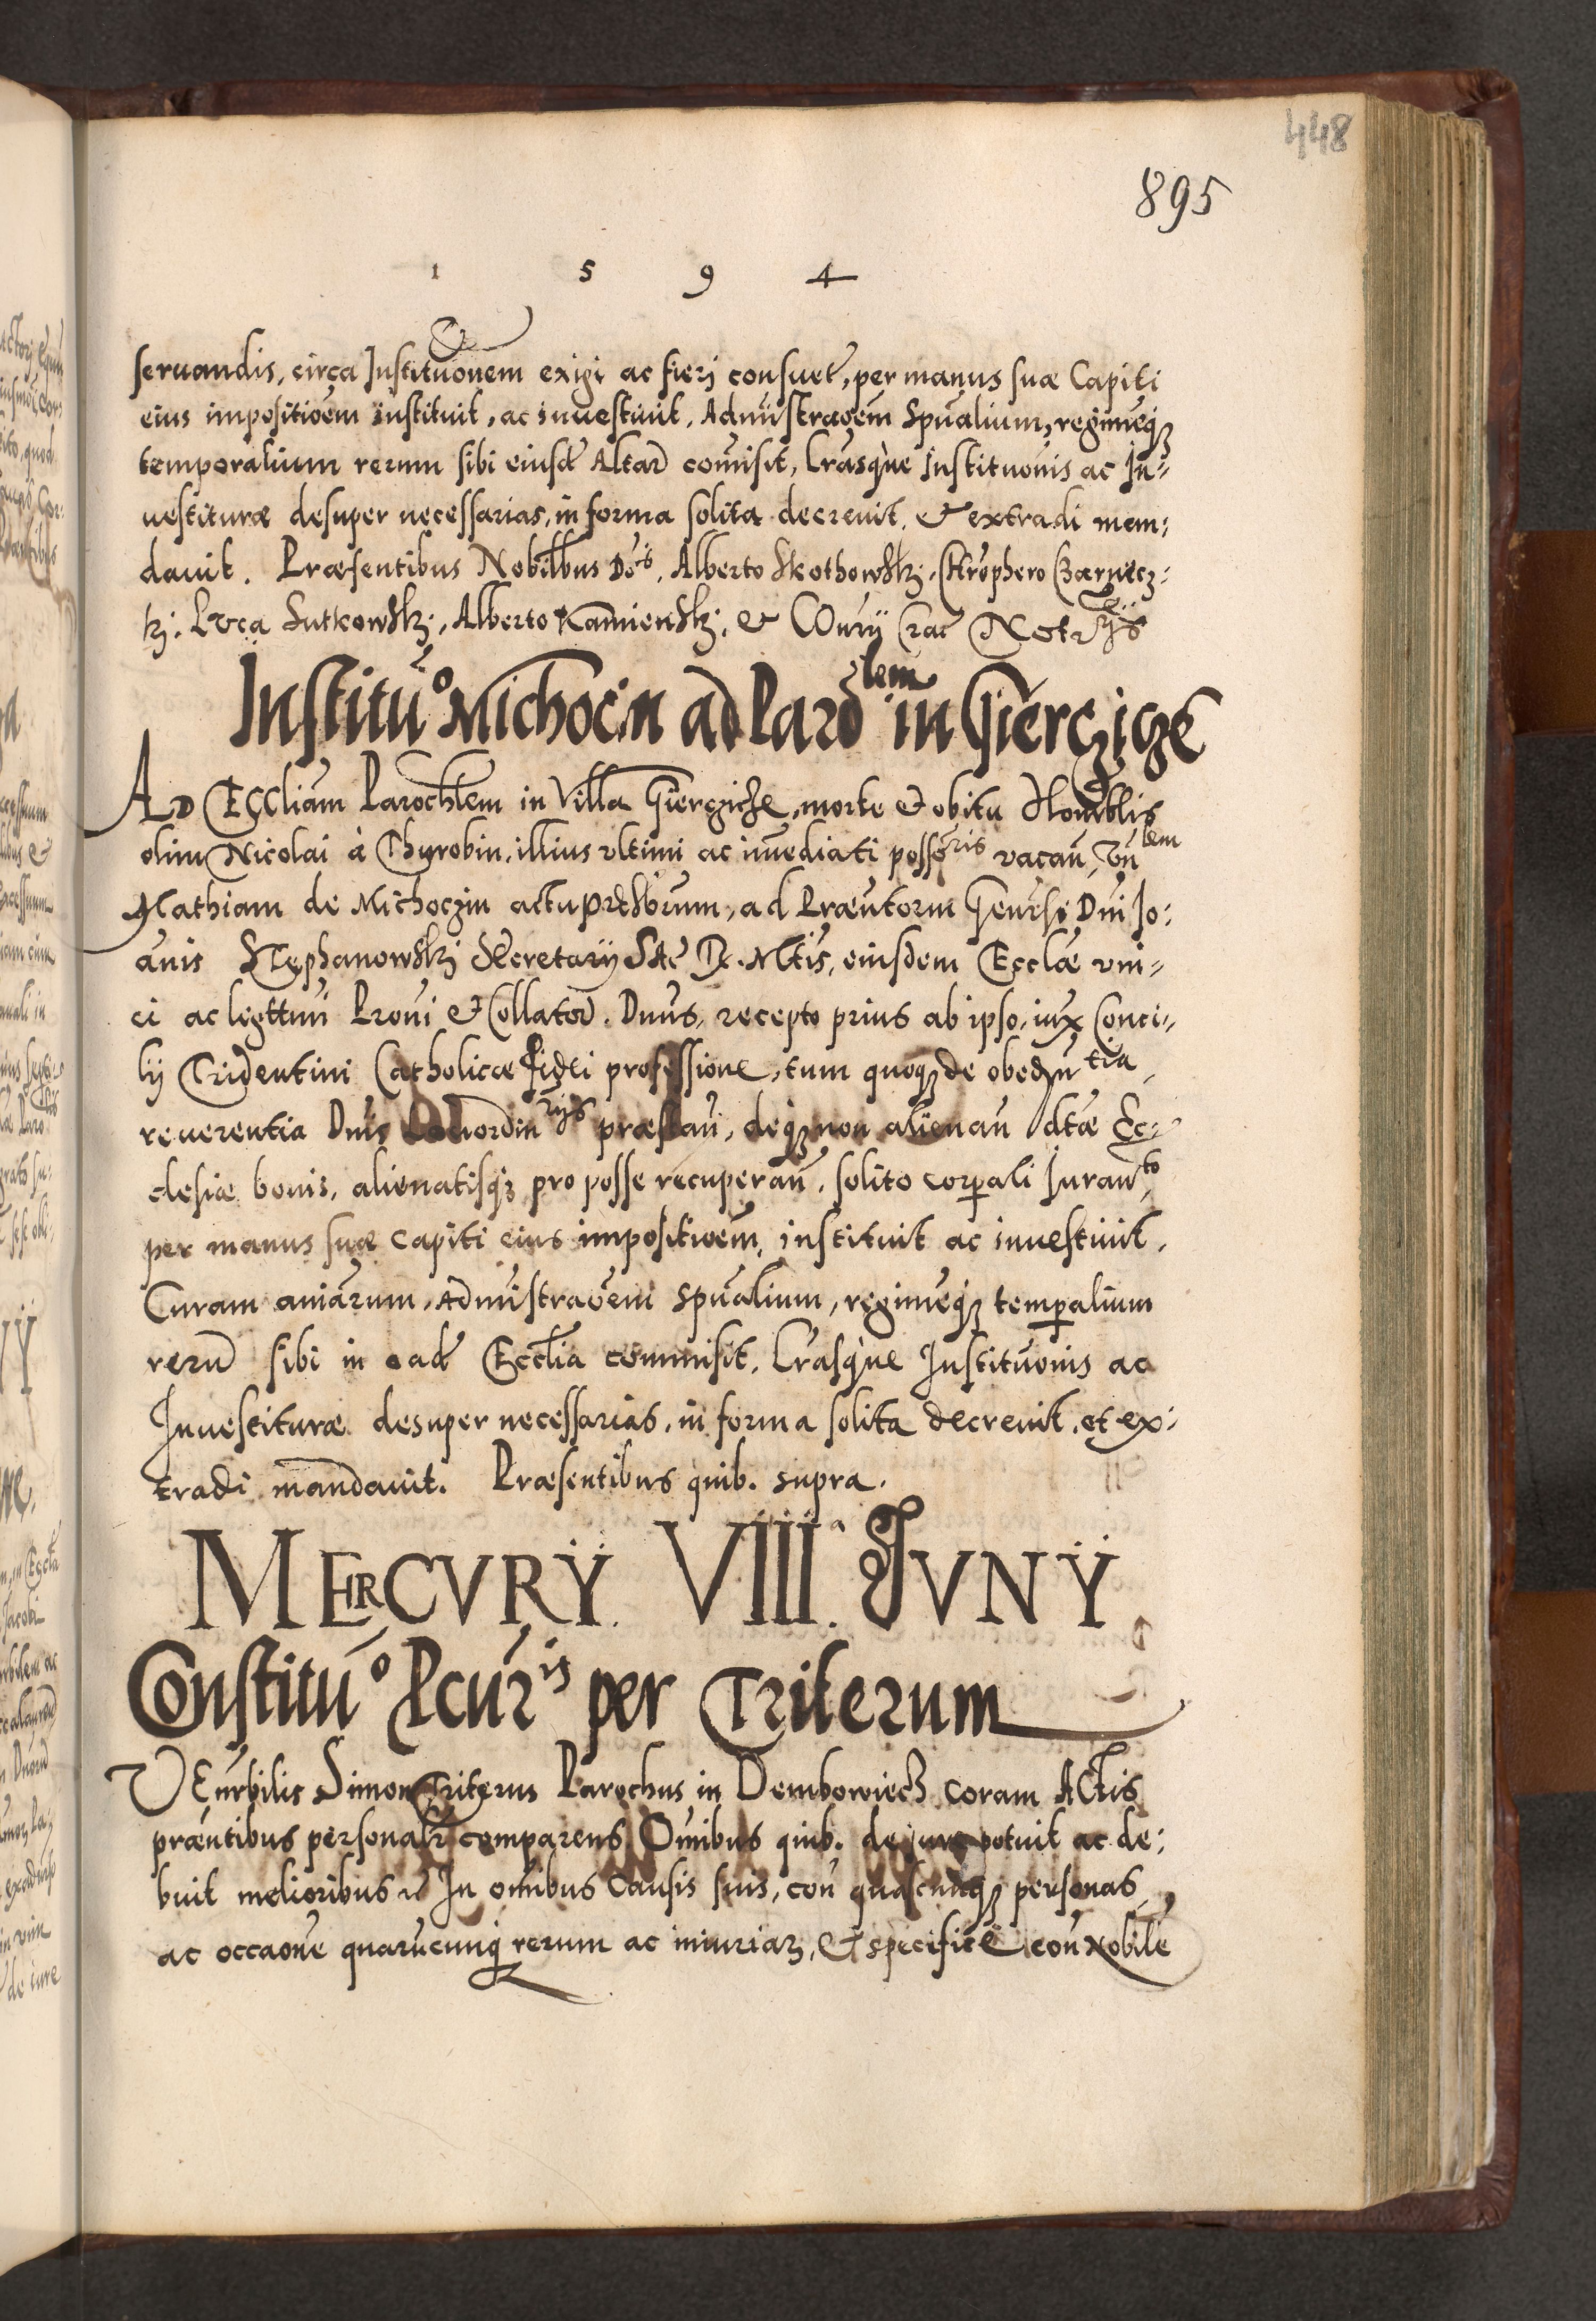 448
895
1 5 9 4
seruandis, circa Institūonem exigi ac fieri consuet̄, per manus suæ Capiti
eius impositioēm instituit, ac inuestiuit, Admīistraōem Spūalium, regimēq;
temporalium rerum sibi eiusd̄ Altār com̄isit, Lr̄asq̀ue Institūonis ac In-
uestituræ desuper necessarias, in forma solita decreuit, et extradi man-
dauit. Præsentibus Nobilībus Dn̄is, Alberto Skothowskj, Chr̄ophero Czarniecz-
kj, Luca Sutkowskj, Alberto Kamienskj, et Con̄rij Crac̄ Notr̄ijs
Institūo Michocin ad Paro͞lem in Giercziсze
Ad Ecc̄liam Paroch̄lem in Villa Gierczicze, morte et obitu Hon̄rblis
olim Nicolai à Thurobin, illius vltimi ac im̄ediati posso͞ris vacan̄, Vn̄lem
Mathiam de Michoczin actu p̄rȩsb̄rum, ad Præn̄torm Genr̄si Dn̄i Jo-
an̄is Stephanowskj Secretarij Sac̄ R. Mtīs, eiusdem Eccl̄æ vni-
ci ac legtt̄imi Pr̄oni et Collator̄. Dn̄us, recepto prius ab ipso, iux̄ Conci-
lij Tridentini Catholicæ fidei professione, tum quoq; de obed̄ntia,
reuerentia Dn̄is Loci ordin̄rijs præstan̄, deq; non alienan̄ dt̄æ Ec-
clesiæ bonis, alienatisq; pro posse recuperan̄, solito corp̄ali Iuran̄to,
per manus suæ capiti eius impositioēm, instituit ac inuestiuit.
Curam an̄iarum, Admīistraōem spūalium, regimēq; temp̄alium
rerū sibi in ead̄ Eccl̄ia commisit, Lr̄asq̀ue Institūonis ac
Inuestituræ desuper necessarias, in forma solita decreuit, et ex-
tradi mandauit. Præsentibus quib. supra.
MERCVRY. VIII. IVNY.
Constitūo Pcūr̄is per Triterum
Ven̄rbilis Simon Triterus Parochus in Dembowiecz coram Actis
præn̄tibus personalr̄ comparens Om̄ibus quib. de jure potuit ac de-
buit melioribus etc̄ In om̄ibus causis suis, con̄ quascunq; personas,
ac occaōne quarūcunq; rerum ac iniuriar̄, et specificē con̄ Nobile